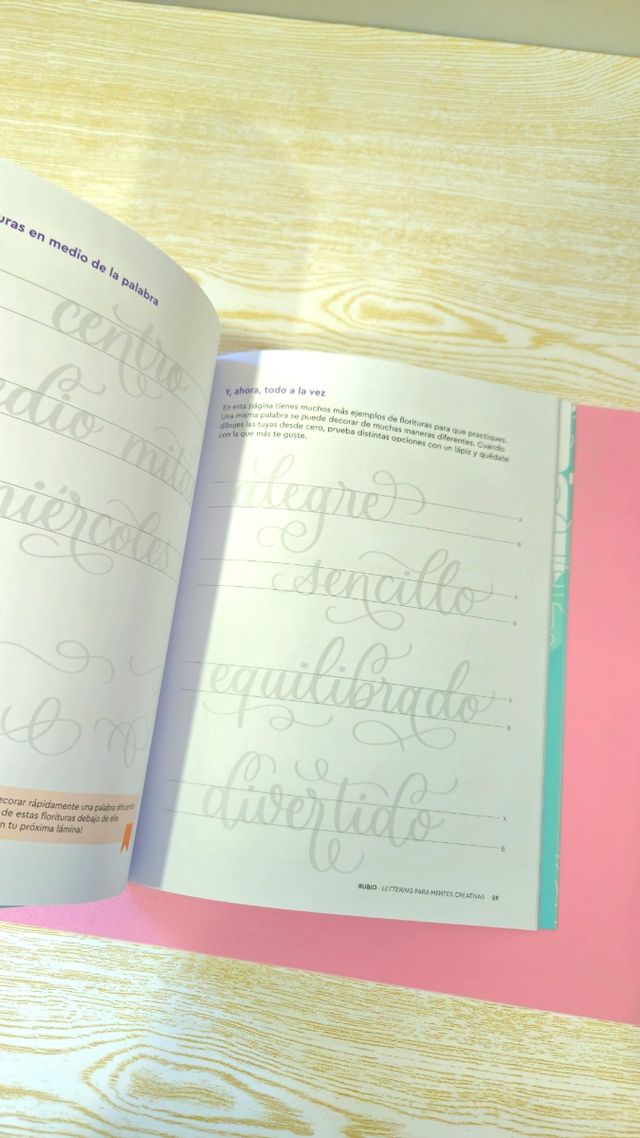 uras en medio de la palabra
centro
edio mitad
miércoles
ecorar rápidamente una palabra dibujando
de estas florituras debajo de ella
n tu próxima lámina!
Y, ahora, todo a la vez
En esta página tienes muchos más ejemplos de florituras para que practiques.
Una misma palabra se puede decorar de muchas maneras diferentes. Cuando
dibujes las tuyas desde cero, prueba distintas opciones con un lápiz y quédate
con la que más te guste.
alegre
X
B
sencillo
X
B
equilibrado
X
B
divertido
X
B
RUBIO · LETTERING PARA MENTES CREATIVAS 59